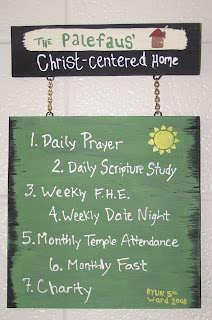 The Palefaus'
Christ-centered Home
1. Daily Prayer
2. Daily Scripture Study
3. Weekly F.H.E.
4. Weekly Date Night
5. Monthly Temple Attendance
6. Monthly Fast
7. Charity
BYUH 5th
Ward 2008